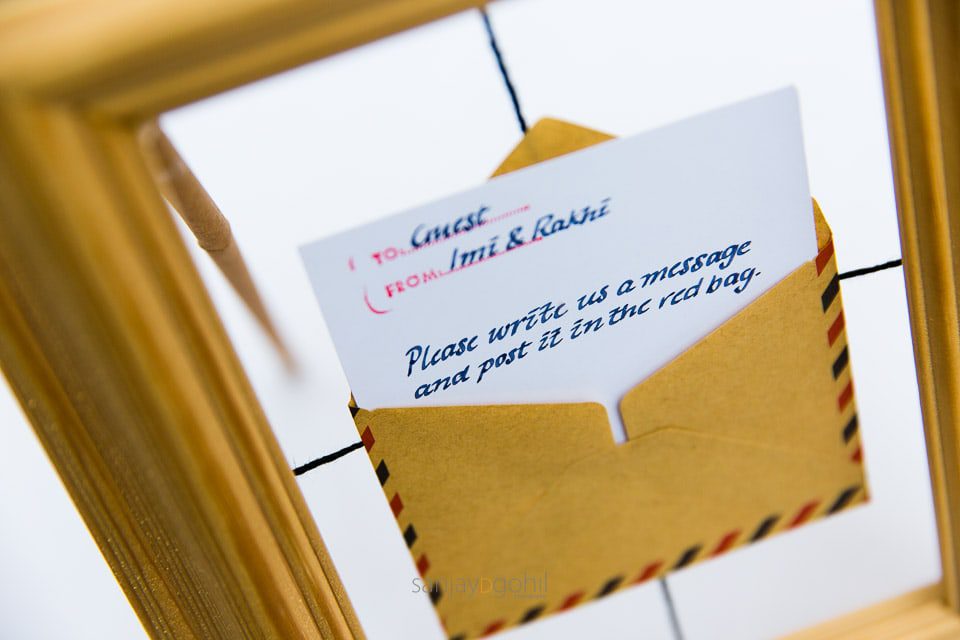 TO: Guest
FROM: Imi & Rakhi
Please write us a message
and post it in the red bag.
sanjay D gohil